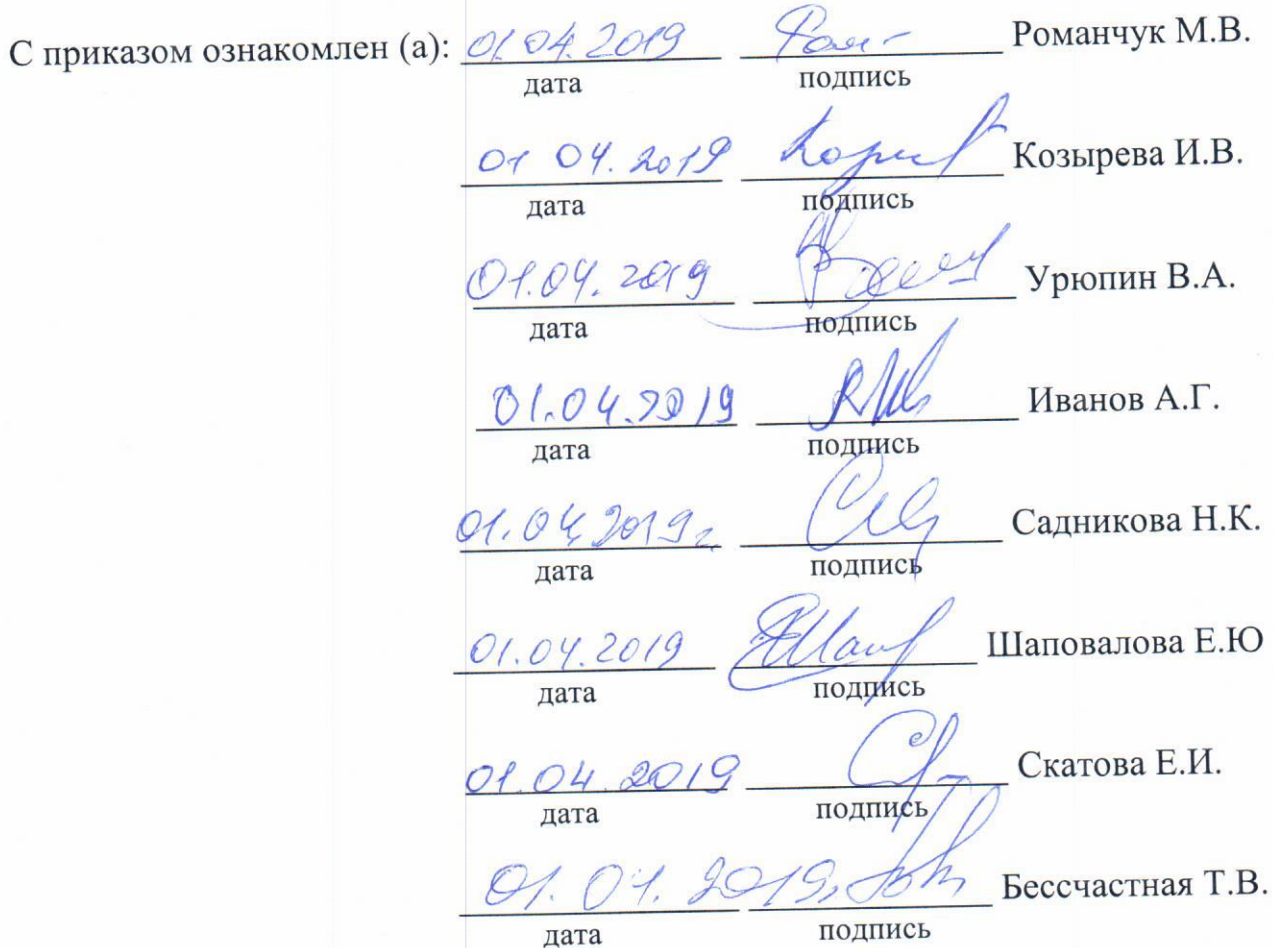 С приказом ознакомлен (а): 01.04.2019 Романчук М.В.
дата подпись
01 04. 2019 Козырева И.В.
дата подпись
01.04. 2019 Урюпин В.А.
дата подпись
01.04.2019 Иванов А.Г.
дата подпись
01.04.2019г Садникова Н.К.
дата подпись
01.04.2019 Шаповалова Е.Ю
дата подпись
01.04.2019 Скатова Е.И.
дата подпись
01.04.2019 Бессчастная Т.В.
дата подпись